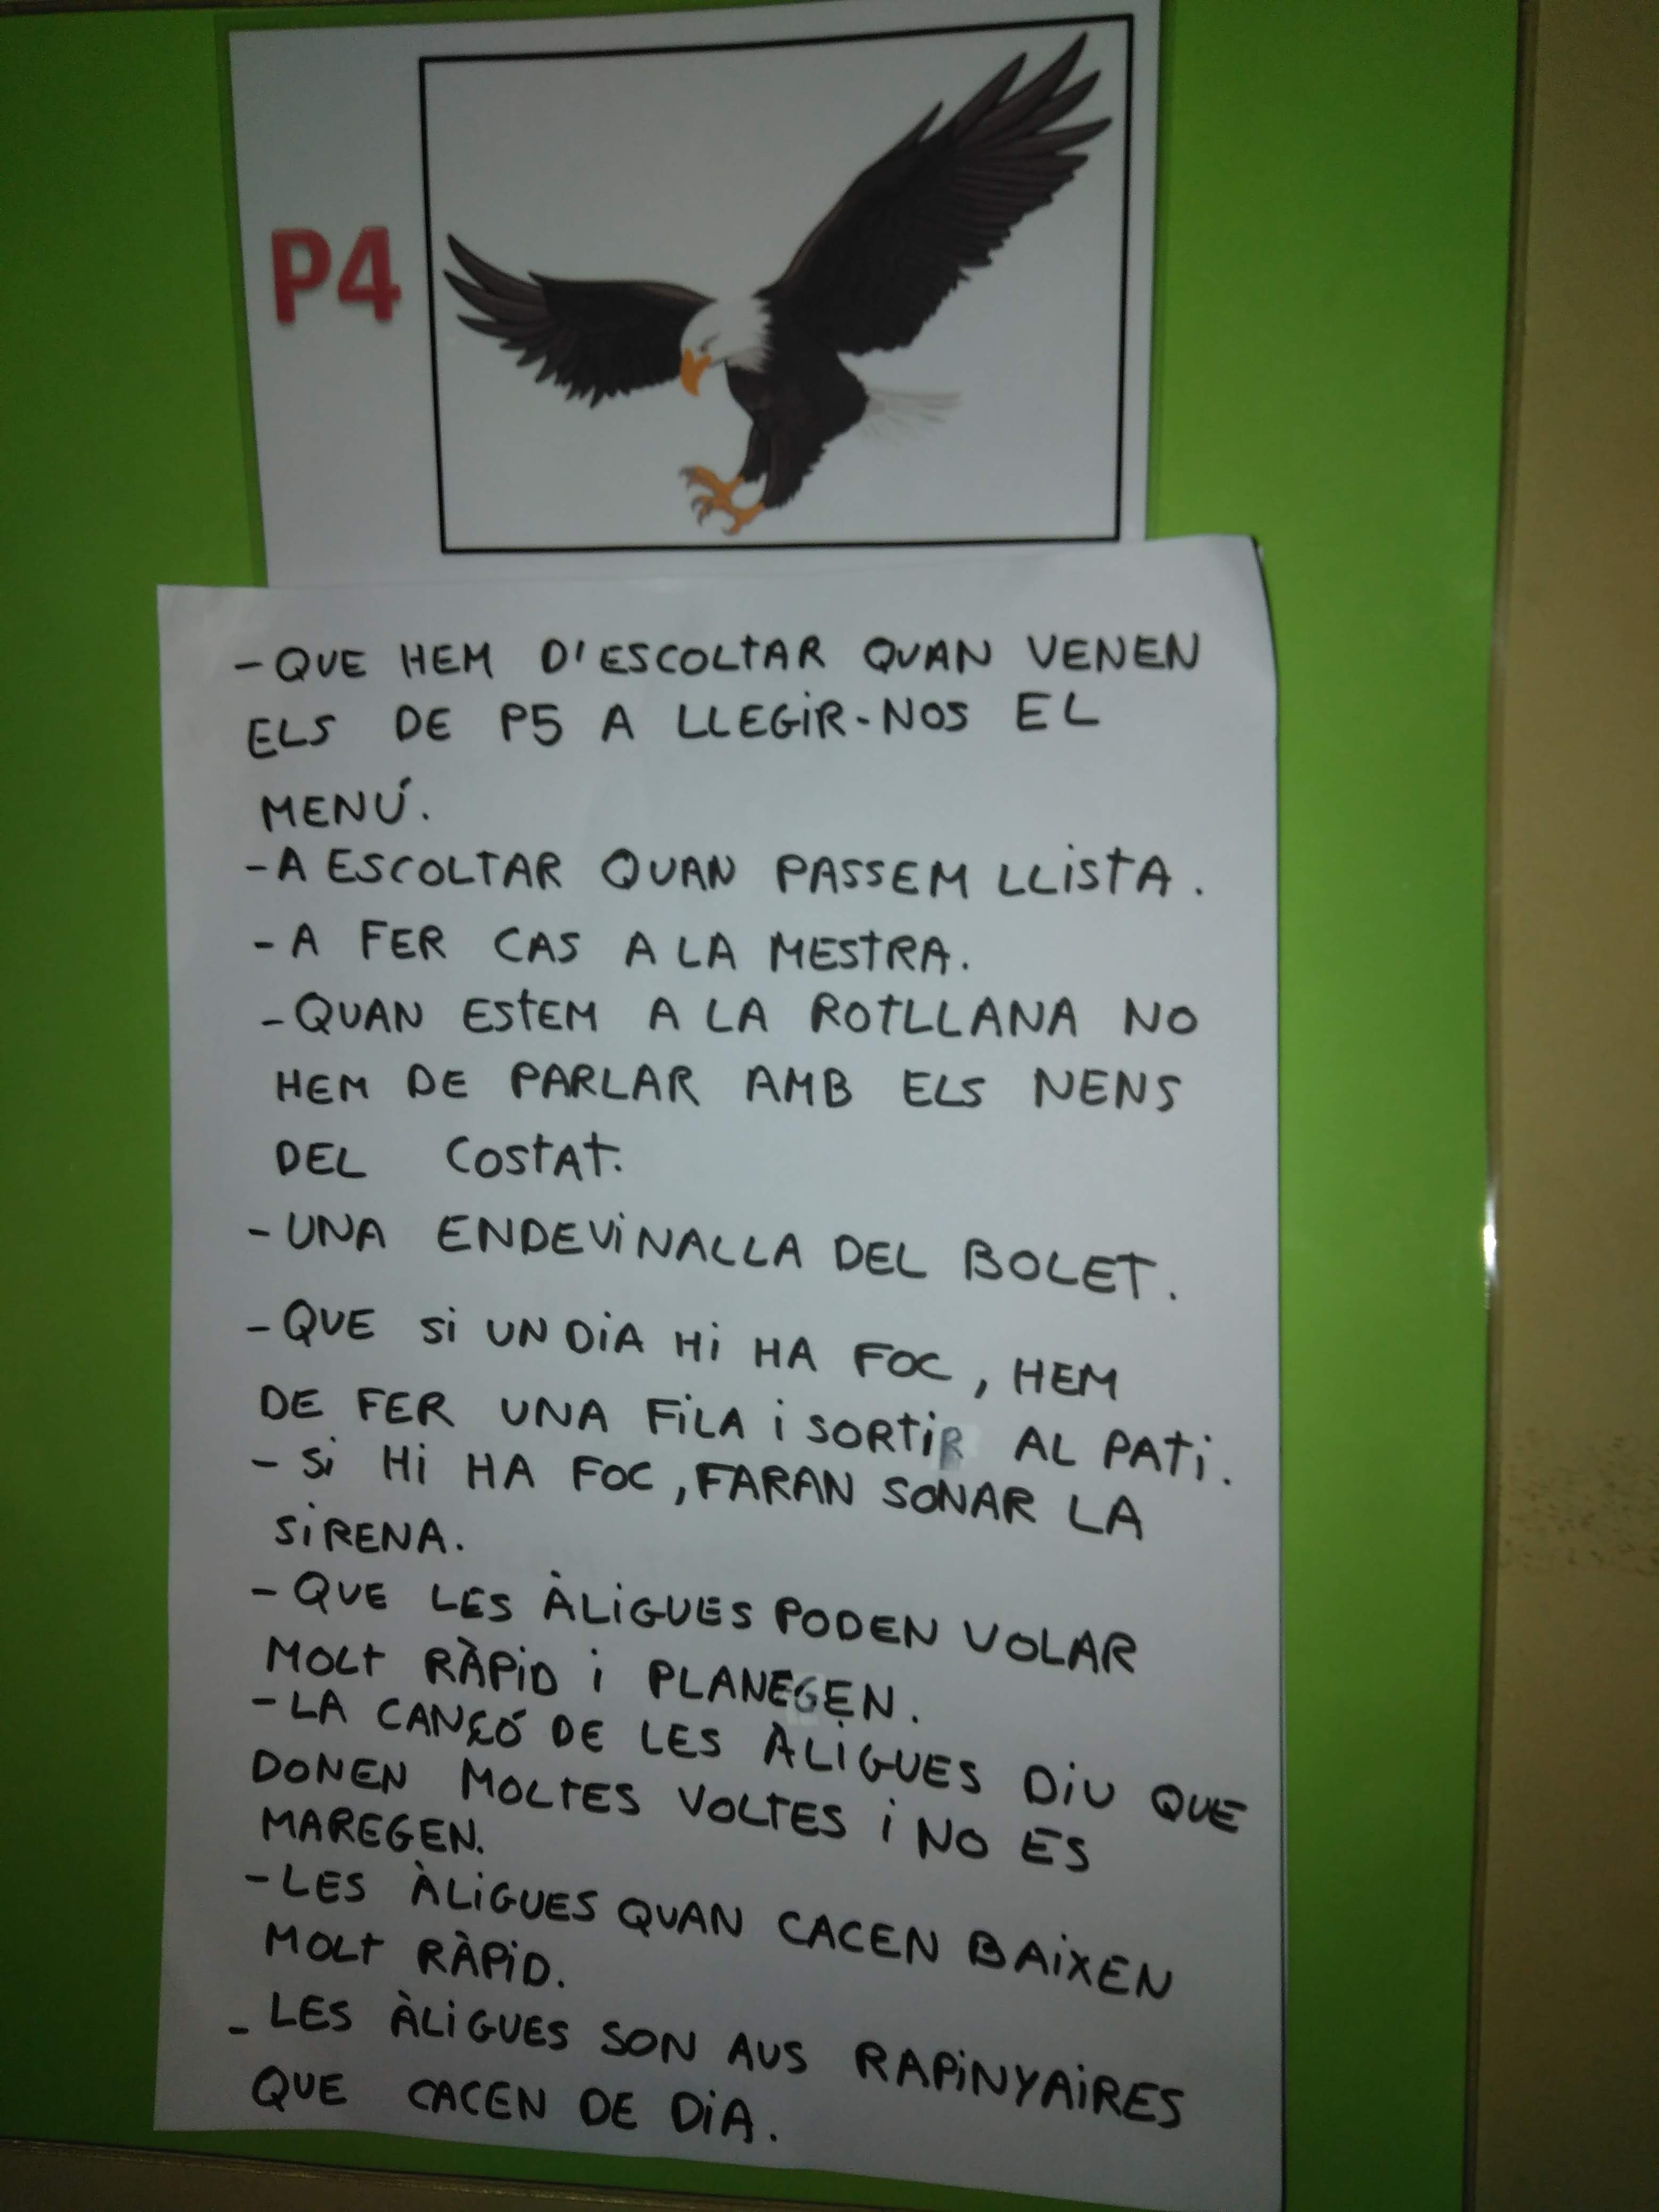 P4
- QUE HEM D'ESCOLTAR QUAN VENEN
ELS DE P5 A LLEGIR-NOS EL
MENÚ.
- A ESCOLTAR QUAN PASSEM LLISTA.
- A FER CAS A LA MESTRA.
- QUAN ESTEM A LA ROTLLANA NO
HEM DE PARLAR AMB ELS NENS
DEL COSTAT.
- UNA ENDEVINALLA DEL BOLET.
- QUE SI UN DIA HI HA FOC, HEM
DE FER UNA FILA I SORTIR AL PATI.
- SI HI HA FOC, FARAN SONAR LA
SIRENA.
- QUE LES ÀLIGUES PODEN VOLAR
MOLT RÀPID I PLANEGEN.
- LA CANÇÓ DE LES ÀLIGUES DIU QUE
DONEN MOLTES VOLTES I NO ES
MAREGEN.
- LES ÀLIGUES QUAN CACEN BAIXEN
MOLT RÀPID.
- LES ÀLIGUES SON AUS RAPINYAIRES
QUE CACEN DE DIA.